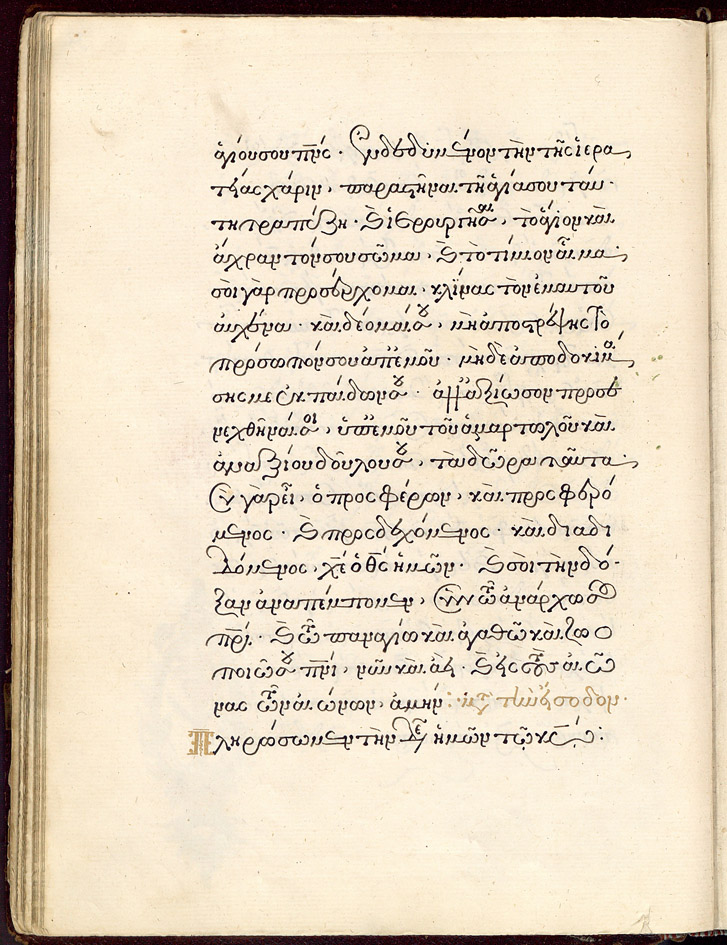 ἁγίου σου πν̅ς · ἐνδεδυμένον τὴν τῆς ἱερα
τείας χάριν, παραστῆναι τῇ ἁγίᾳ σου ταύ
τῃ τραπέζῃ · καὶ ἱερουργῆσαι, τὸ ἅγιον καὶ
ἄχραντόν σου σῶμα, καὶ τὸ τίμιον αἷμα ·
σοὶ γὰρ προσέρχομαι, κλίνας τὸν ἐμαυτοῦ
αὐχένα · καὶ δέομαί σου, μὴ ἀποστρέψῃς τὸ
πρόσωπόν σου ἀπ' ἐμοῦ · μηδὲ ἀποδοκιμά
σῃς με ἐκ παίδων σου · ἀλλ' ἀξίωσον προσε
νεχθῆναί σοι, ὑπ' ἐμοῦ τοῦ ἁμαρτωλοῦ καὶ
ἀναξίου δούλου σου, τὰ δῶρα ταῦτα ·
σὺ γὰρ εἶ, ὁ προσφέρων, καὶ προσφερό
μενος · καὶ προσδεχόμενος · καὶ διαδι
δόμενος, χε̅ ὁ θς̅ ἡμῶν · καὶ σοὶ τὴν δό
ξαν ἀναπέμπομεν, σὺν τῷ ἀνάρχῳ σου
πρι̅ · καὶ τῷ παναγίῳ καὶ ἀγαθῷ καὶ ζωο
ποιῷ σου πνι̅, νῦν καὶ ἀεὶ · καὶ εἰς τοὺς αἰῶ
νας τῶν αἰώνων, ἀμήν : μετὰ τὴν εἴσοδον ·
Πληρώσωμεν τὴν δέησιν ἡμῶν τῷ κω̅ :